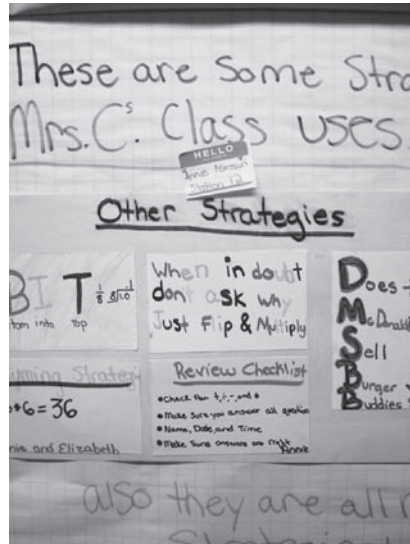 These are Some Stra
Mrs. C's. Class uses.
HELLO
Annie
Station 12
Other Strategies
BIT 1/8 8)1.0
tom into Top
When in doubt
dont ask why
Just Flip & Multiply
Does
McDonald
Sell
Burger
Buddies
yming Strategi
*6=36
nie and Elizabeth
Review Checklist
•Check for +,÷,-, and
•Make Sure you answer all
•Name, Date, and Time
•Make Sure answers are right
Annie
also they are all r